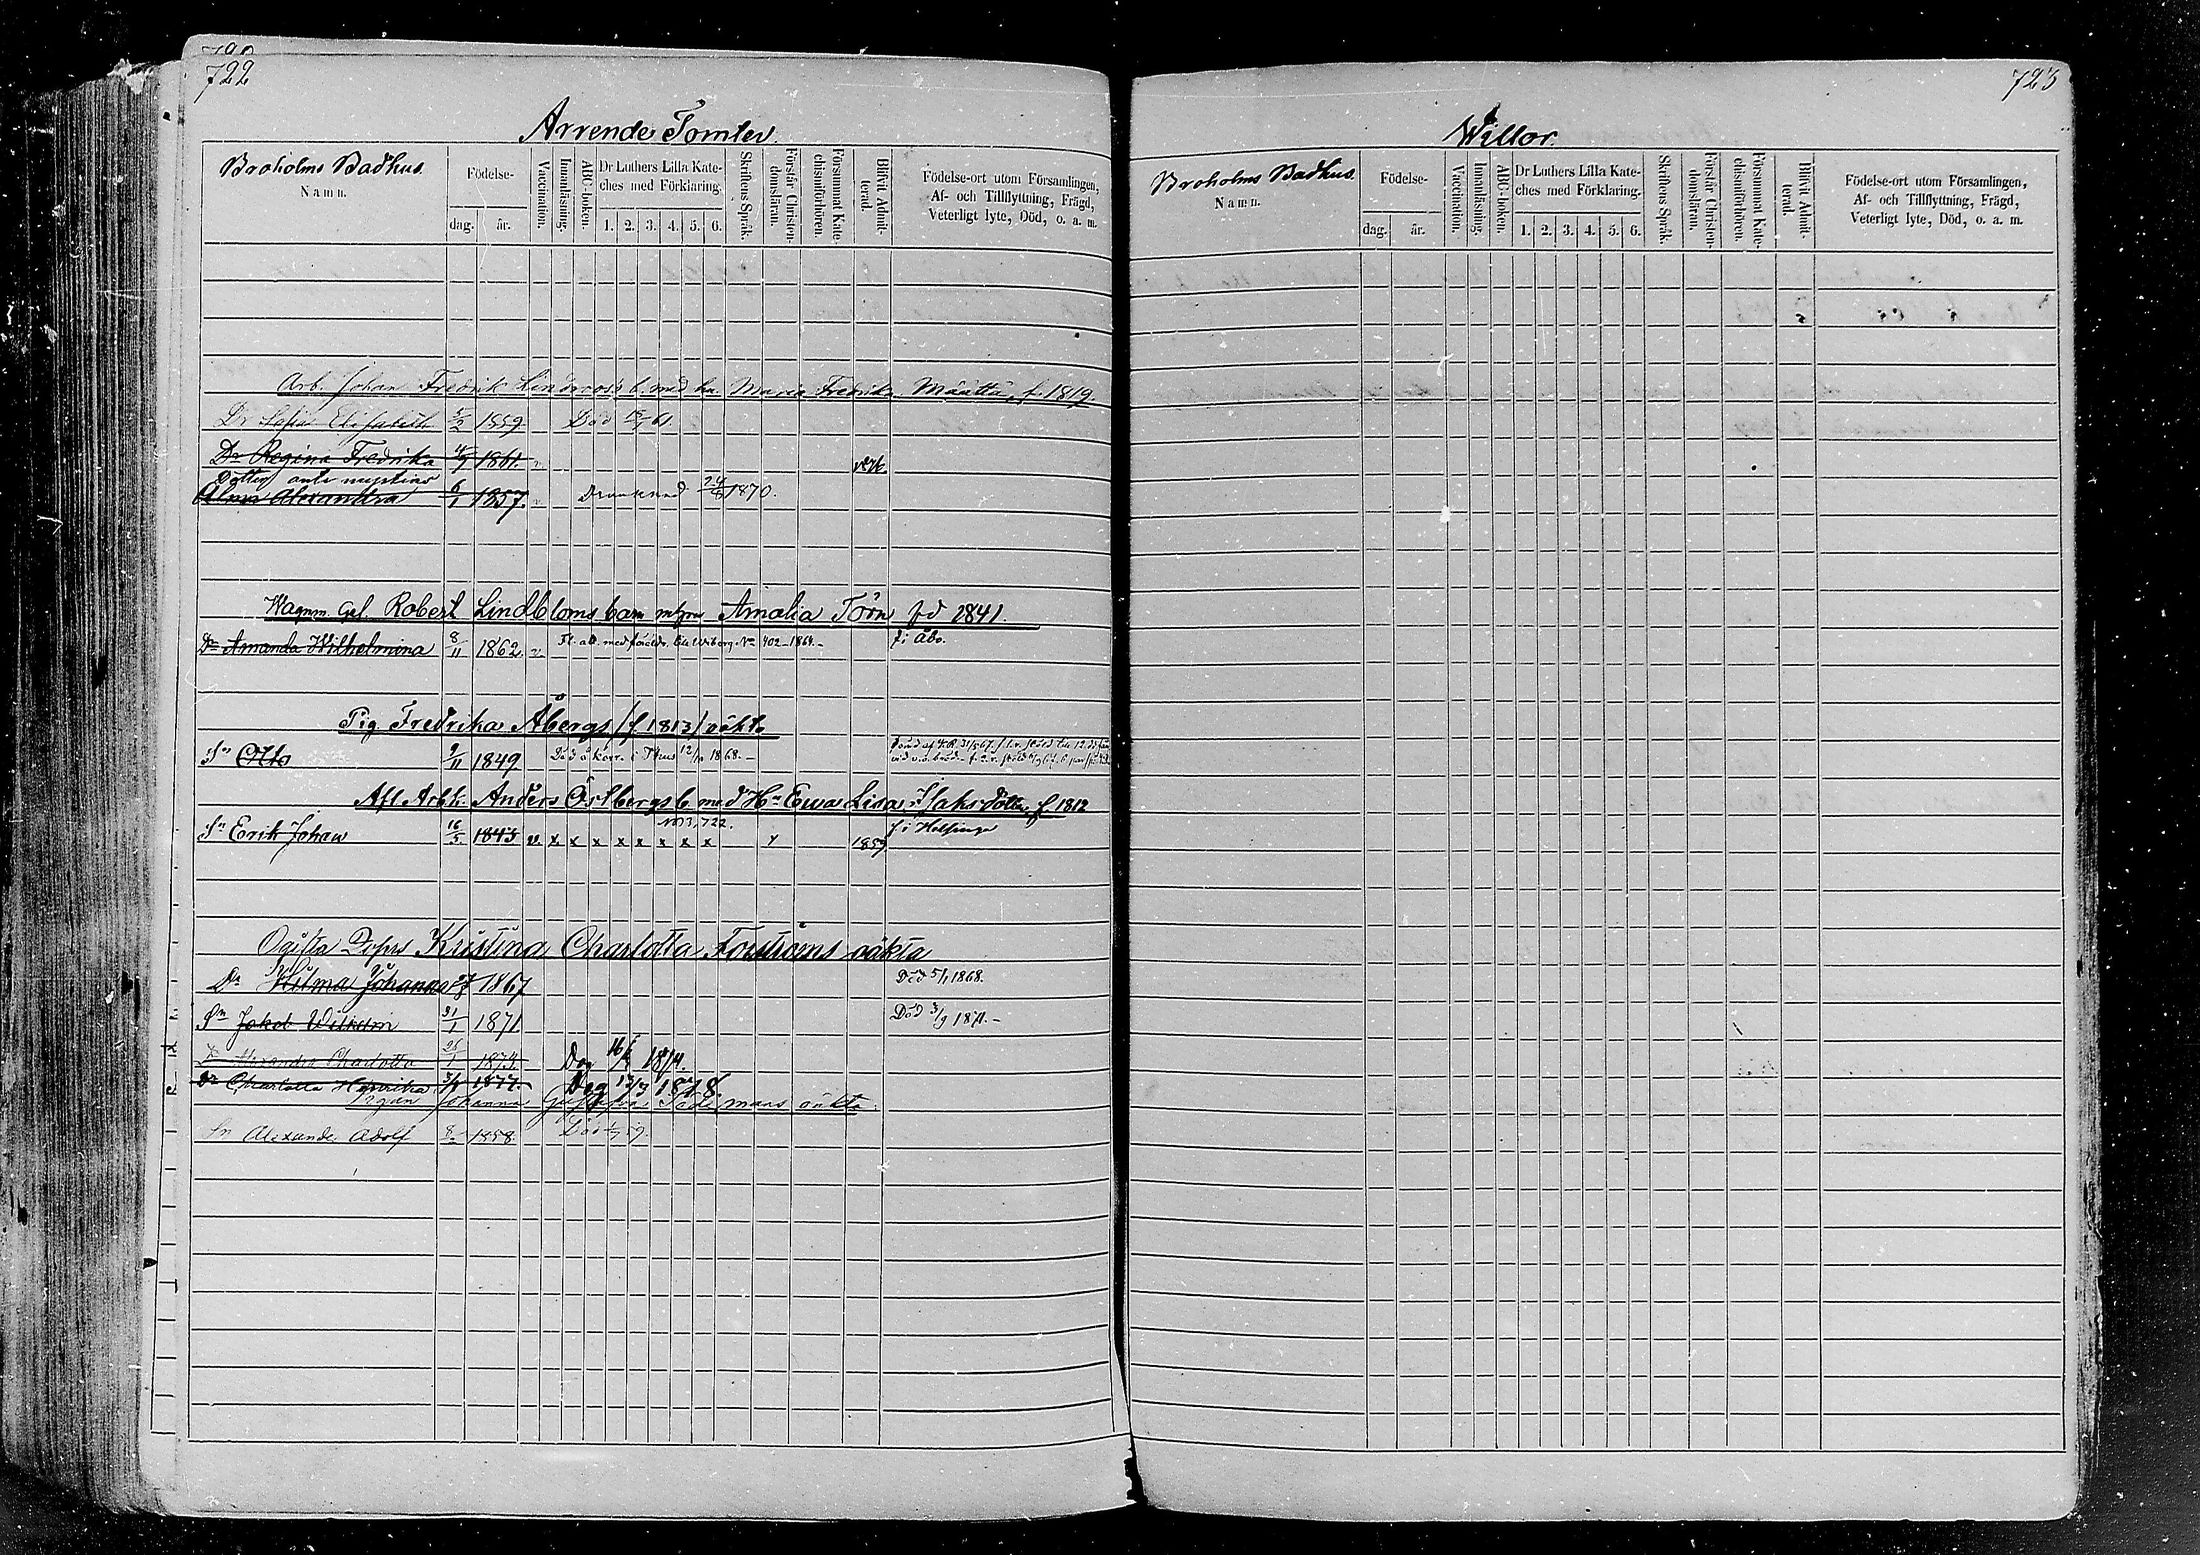 722
Arrende Tomter.
Broholms Badhus.
Namn.
Födelse-
dag. år.
Vaccination.
Innanläsning.
ABC-boken.
Dr Luthers Lilla Kate-
ches med Förklaring.
1. 2. 3. 4. 5. 6.
Skriftens Språk.
Förstår Christen-
domsläran.
Försummat Kate-
chismiförhören.
Blifvit Admit-
terad.
Födelse-ort utom Församlingen,
Af- och Tillflyttning, Frägd,
Veterligt lyte, Död, o. a. m.
Arb. Johan Fredrik Lindroos b. med hu. Maria Fredrika Määttä, f. 1819.
Dr Sofia Elisabeth 5/2 1859 Död 61.
Dr Regina Fredrika 4/9 1861.
Dotter ante nuptias
Alma Alexandra 6/1 1857. v Drunknad 24/8 1870.
Wagnm. Gel. Robert Lindbloms barn m hu Amalia Törn fd 1841.
Dr Amanda Wilhelmina 8/11 1862. v. Fl. att. med föräldr. till Wiborg No 402 - 1864. - f. i Åbo.
Pig. Fredrika Åbergs (f. 1813) oäkta
Sn Otto 9/11 1849 Död å korr. i Thus 12/10 1868. -
Afl. Arbk. Anders Östbergs b. med Hu Ewa Lisa Isaksdotter, f. 1812
Sn Erik Johan 16/5 1843 v. x x x x x x x x x 1859 f. i Helsinge
M3, 722.
Ogifta Kristina Charlotta Forströms oäkta
Dr Hilma Johanna 1867 Död 5/1 1868.
Sn Jakob Wilhelm 31/1 1871 Död 3/9 1871. -
Dr Alexandra Charlotta 26/1 1873. Dog 16/ 1874.
Dr Charlotta Henrika 3/1 1877. Dog 13/7 1878.
Pigan Johanna Gustafva Södermans oäkta.
Sn Alexander Adolf 8/2 1858. Död 59.
723
Willor.
Broholms Badhus.
Namn.
Födelse-
dag. år.
Vaccination.
Innanläsning.
ABC-boken.
Dr Luthers Lilla Kate-
ches med Förklaring.
1. 2. 3. 4. 5. 6.
Skriftens Språk.
Förstår Christen-
domsläran.
Försummat Kate-
chismiförhören.
Blifvit Admit-
terad.
Födelse-ort utom Församlingen,
Af- och Tillflyttning, Frägd,
Veterligt lyte, Död, o. a. m.